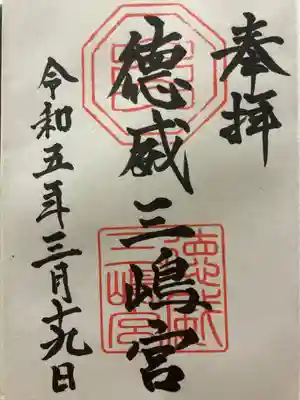 奉拝
徳威三嶋宮
徳威
三嶋宮
令和五年三月十九日